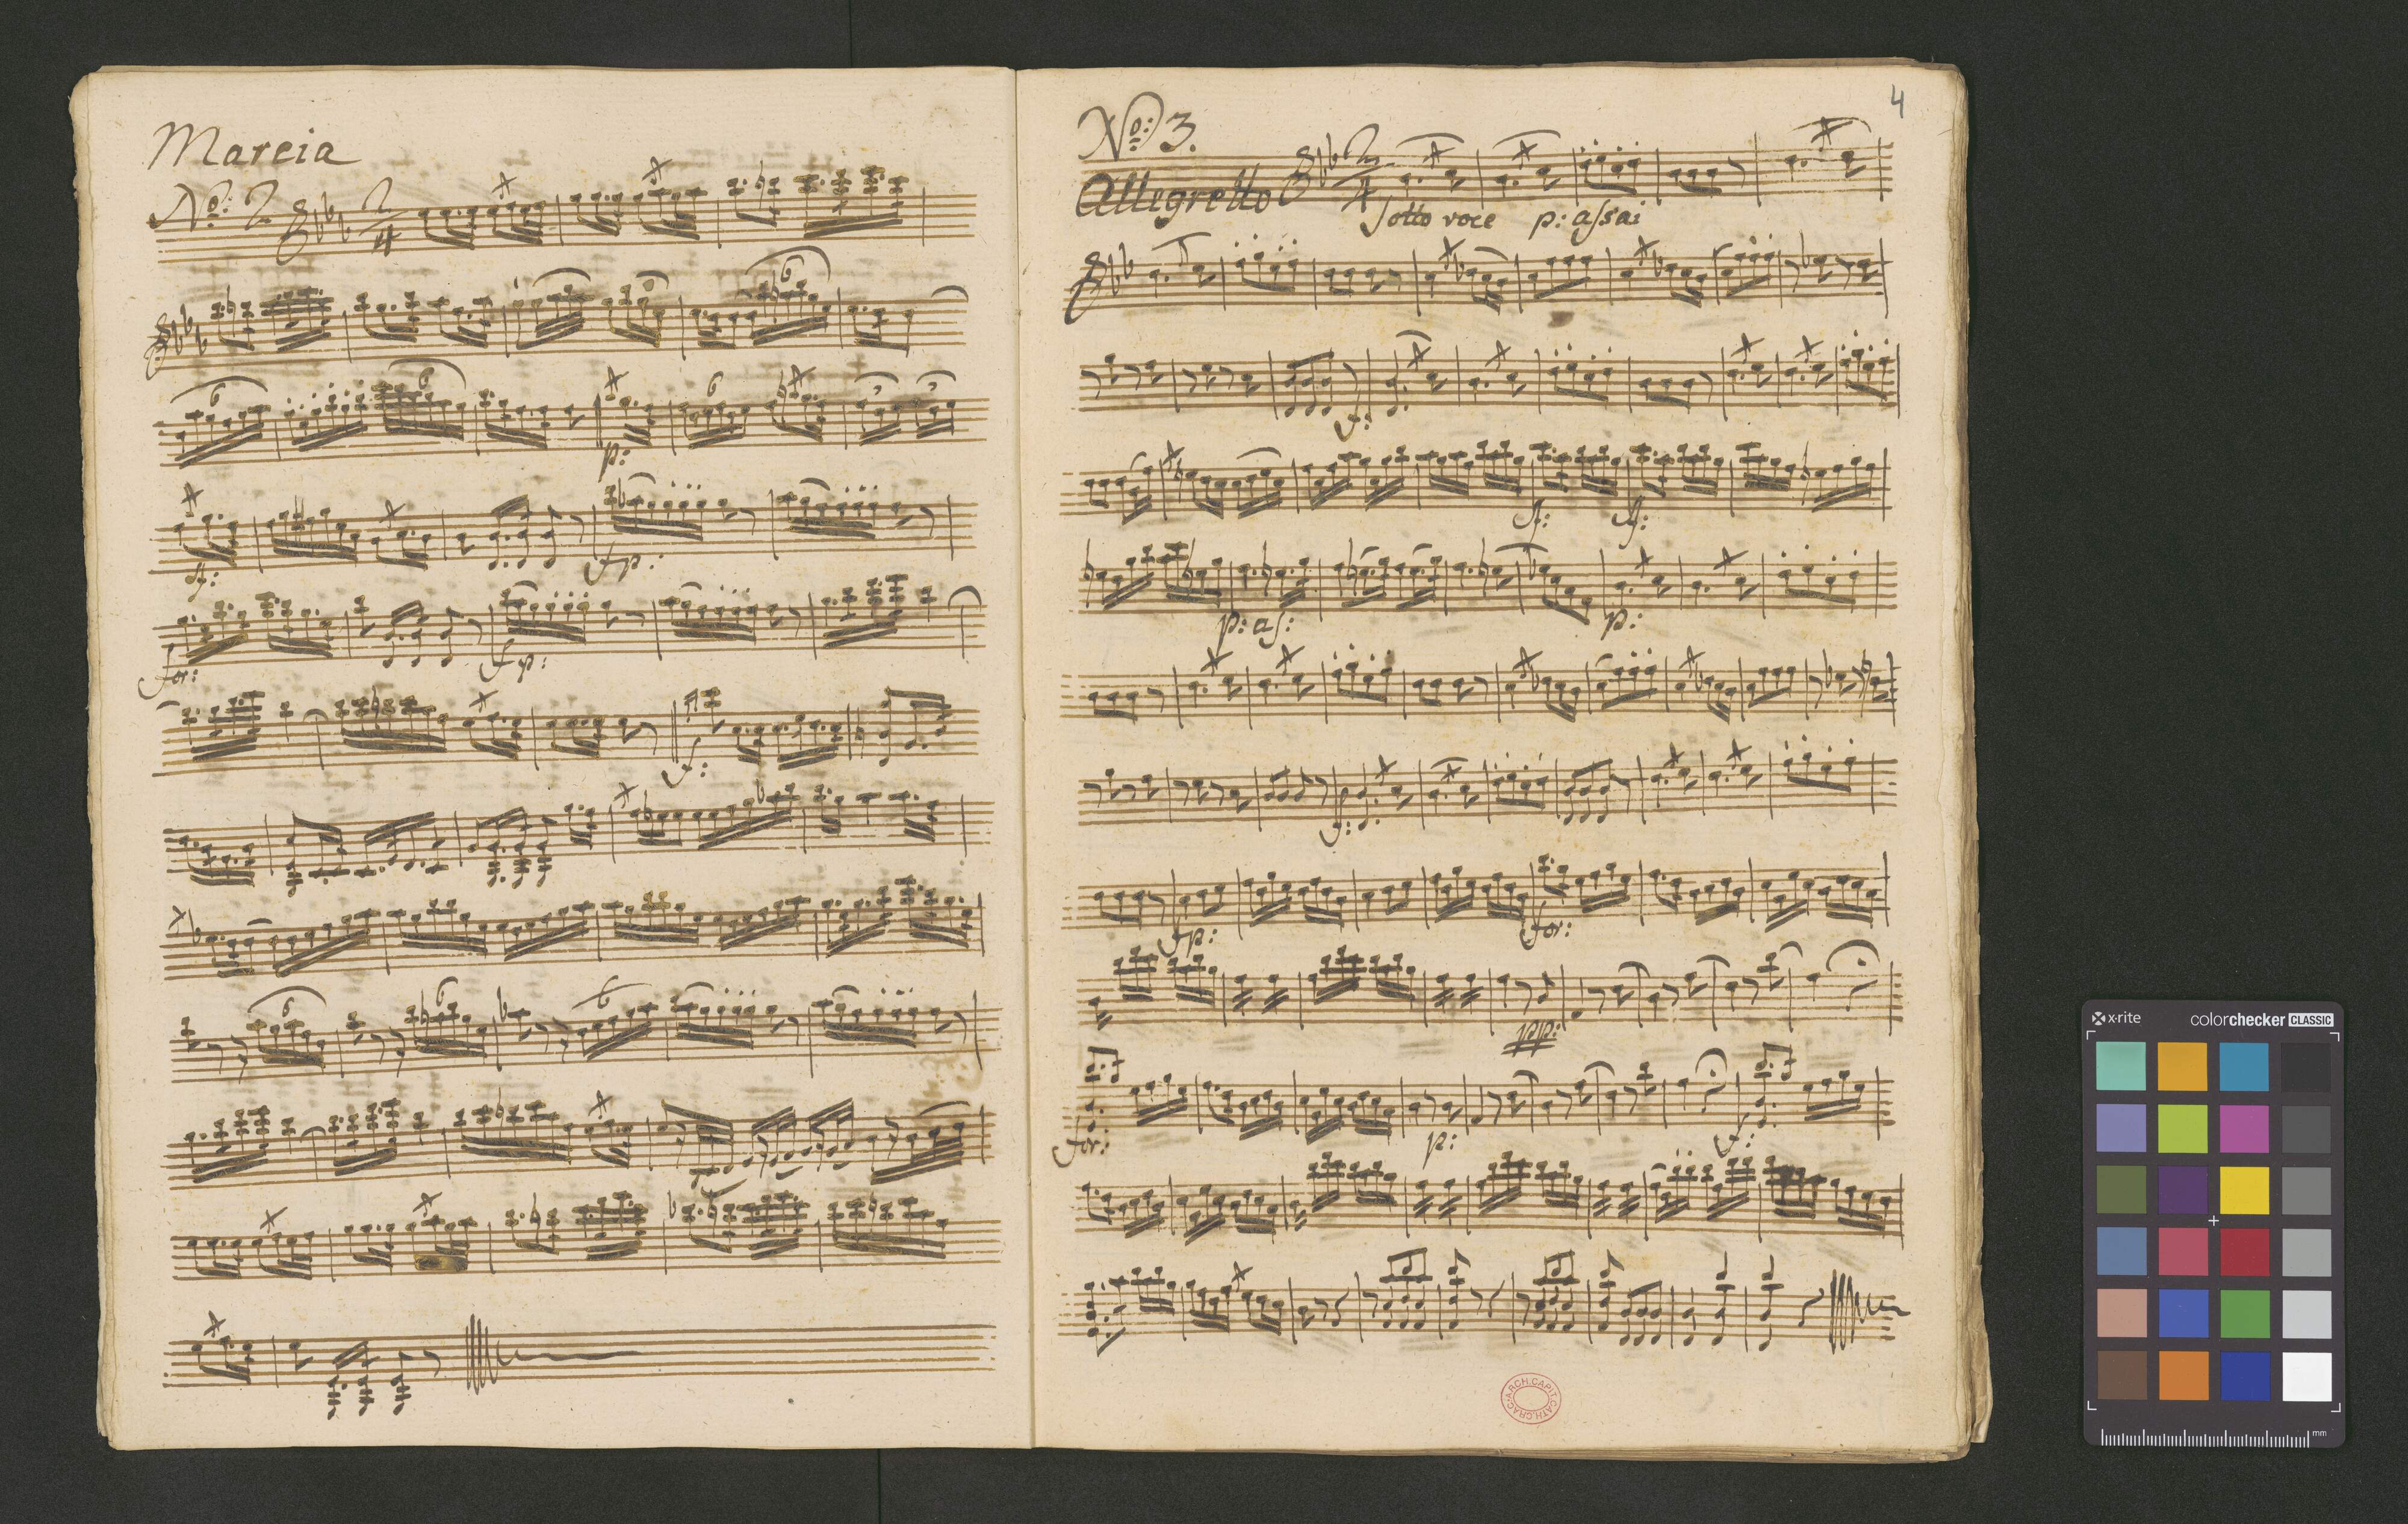 Marcia
No: 2
2/4
6
6
6
p:
6
3
3
sf:
fp:
for:
fp:
f:
6
6
6
4
No: 3.
Allegretto
2/4
Sotto voce p: assai
f:
sf:
sf:
p: as:
p:
f:
fp:
for:
pp:
for:
p:
f:
ARCH. CAPIT. CATH. CRAC.
x·rite
colorchecker CLASSIC
mm